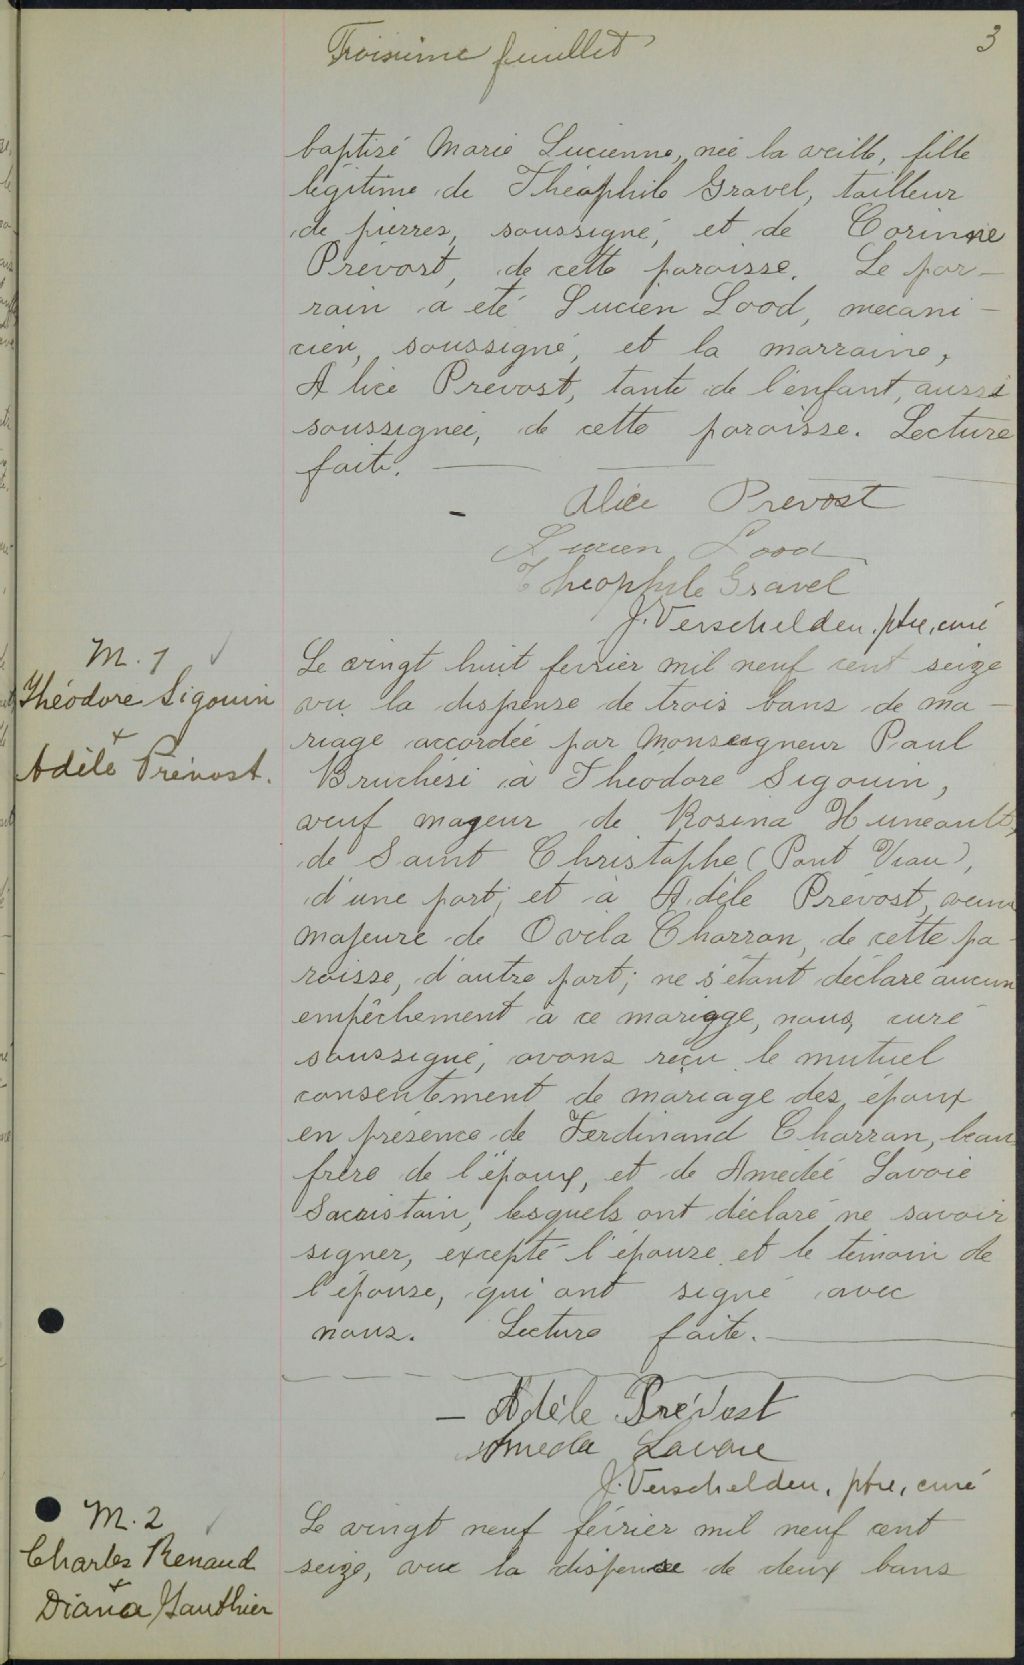 Troisième feuillet
3
baptisé Marie Lucienne, née la veille, fille
légitime de Théophile Gravel, tailleur
de pierres, soussigné, et de Corinne
Prévost, de cette paroisse. Le par-
rain a été Lucien Lood, mécani-
cien, soussigné, et la marraine,
Alice Prevost, tante de l'enfant, aussi
soussignée, de cette paroisse. Lecture
faite.
Alice Prevost
Lucien Lood
Théophile Gravel
J. Verschelden, ptre, curé
M. 1
Théodore Sigouin
+
Adèle Prévost.
Le vingt huit février mil neuf cent seize
vu la dispense de trois bans de ma-
riage accordée par Monseigneur Paul
Bruchési à Théodore Sigouin,
veuf majeur de Rosina Huneault,
de Saint Christophe (Pont Viau),
d'une part; et à Adèle Prévost, veuve
majeure de Ovila Charron, de cette pa-
roisse, d'autre part; ne s'étant déclaré aucun
empêchement à ce mariage, nous, curé
soussigné, avons reçu le mutuel
consentement de mariage des époux
en présence de Ferdinand Charron, beau
frère de l'époux, et de Amédée Lavoie
Sacristain, lesquels ont déclaré ne savoir
signer, excepté l'épouse et le témoin de
l'épouse, qui ont signé avec
nous. Lecture faite.
Adèle Prévost
Ameda Lavoie
J. Verschelden, ptre, curé
M. 2
Charles Renaud
+
Diana Gauthier
Le vingt neuf février mil neuf cent
seize, vue la dispense de deux bans